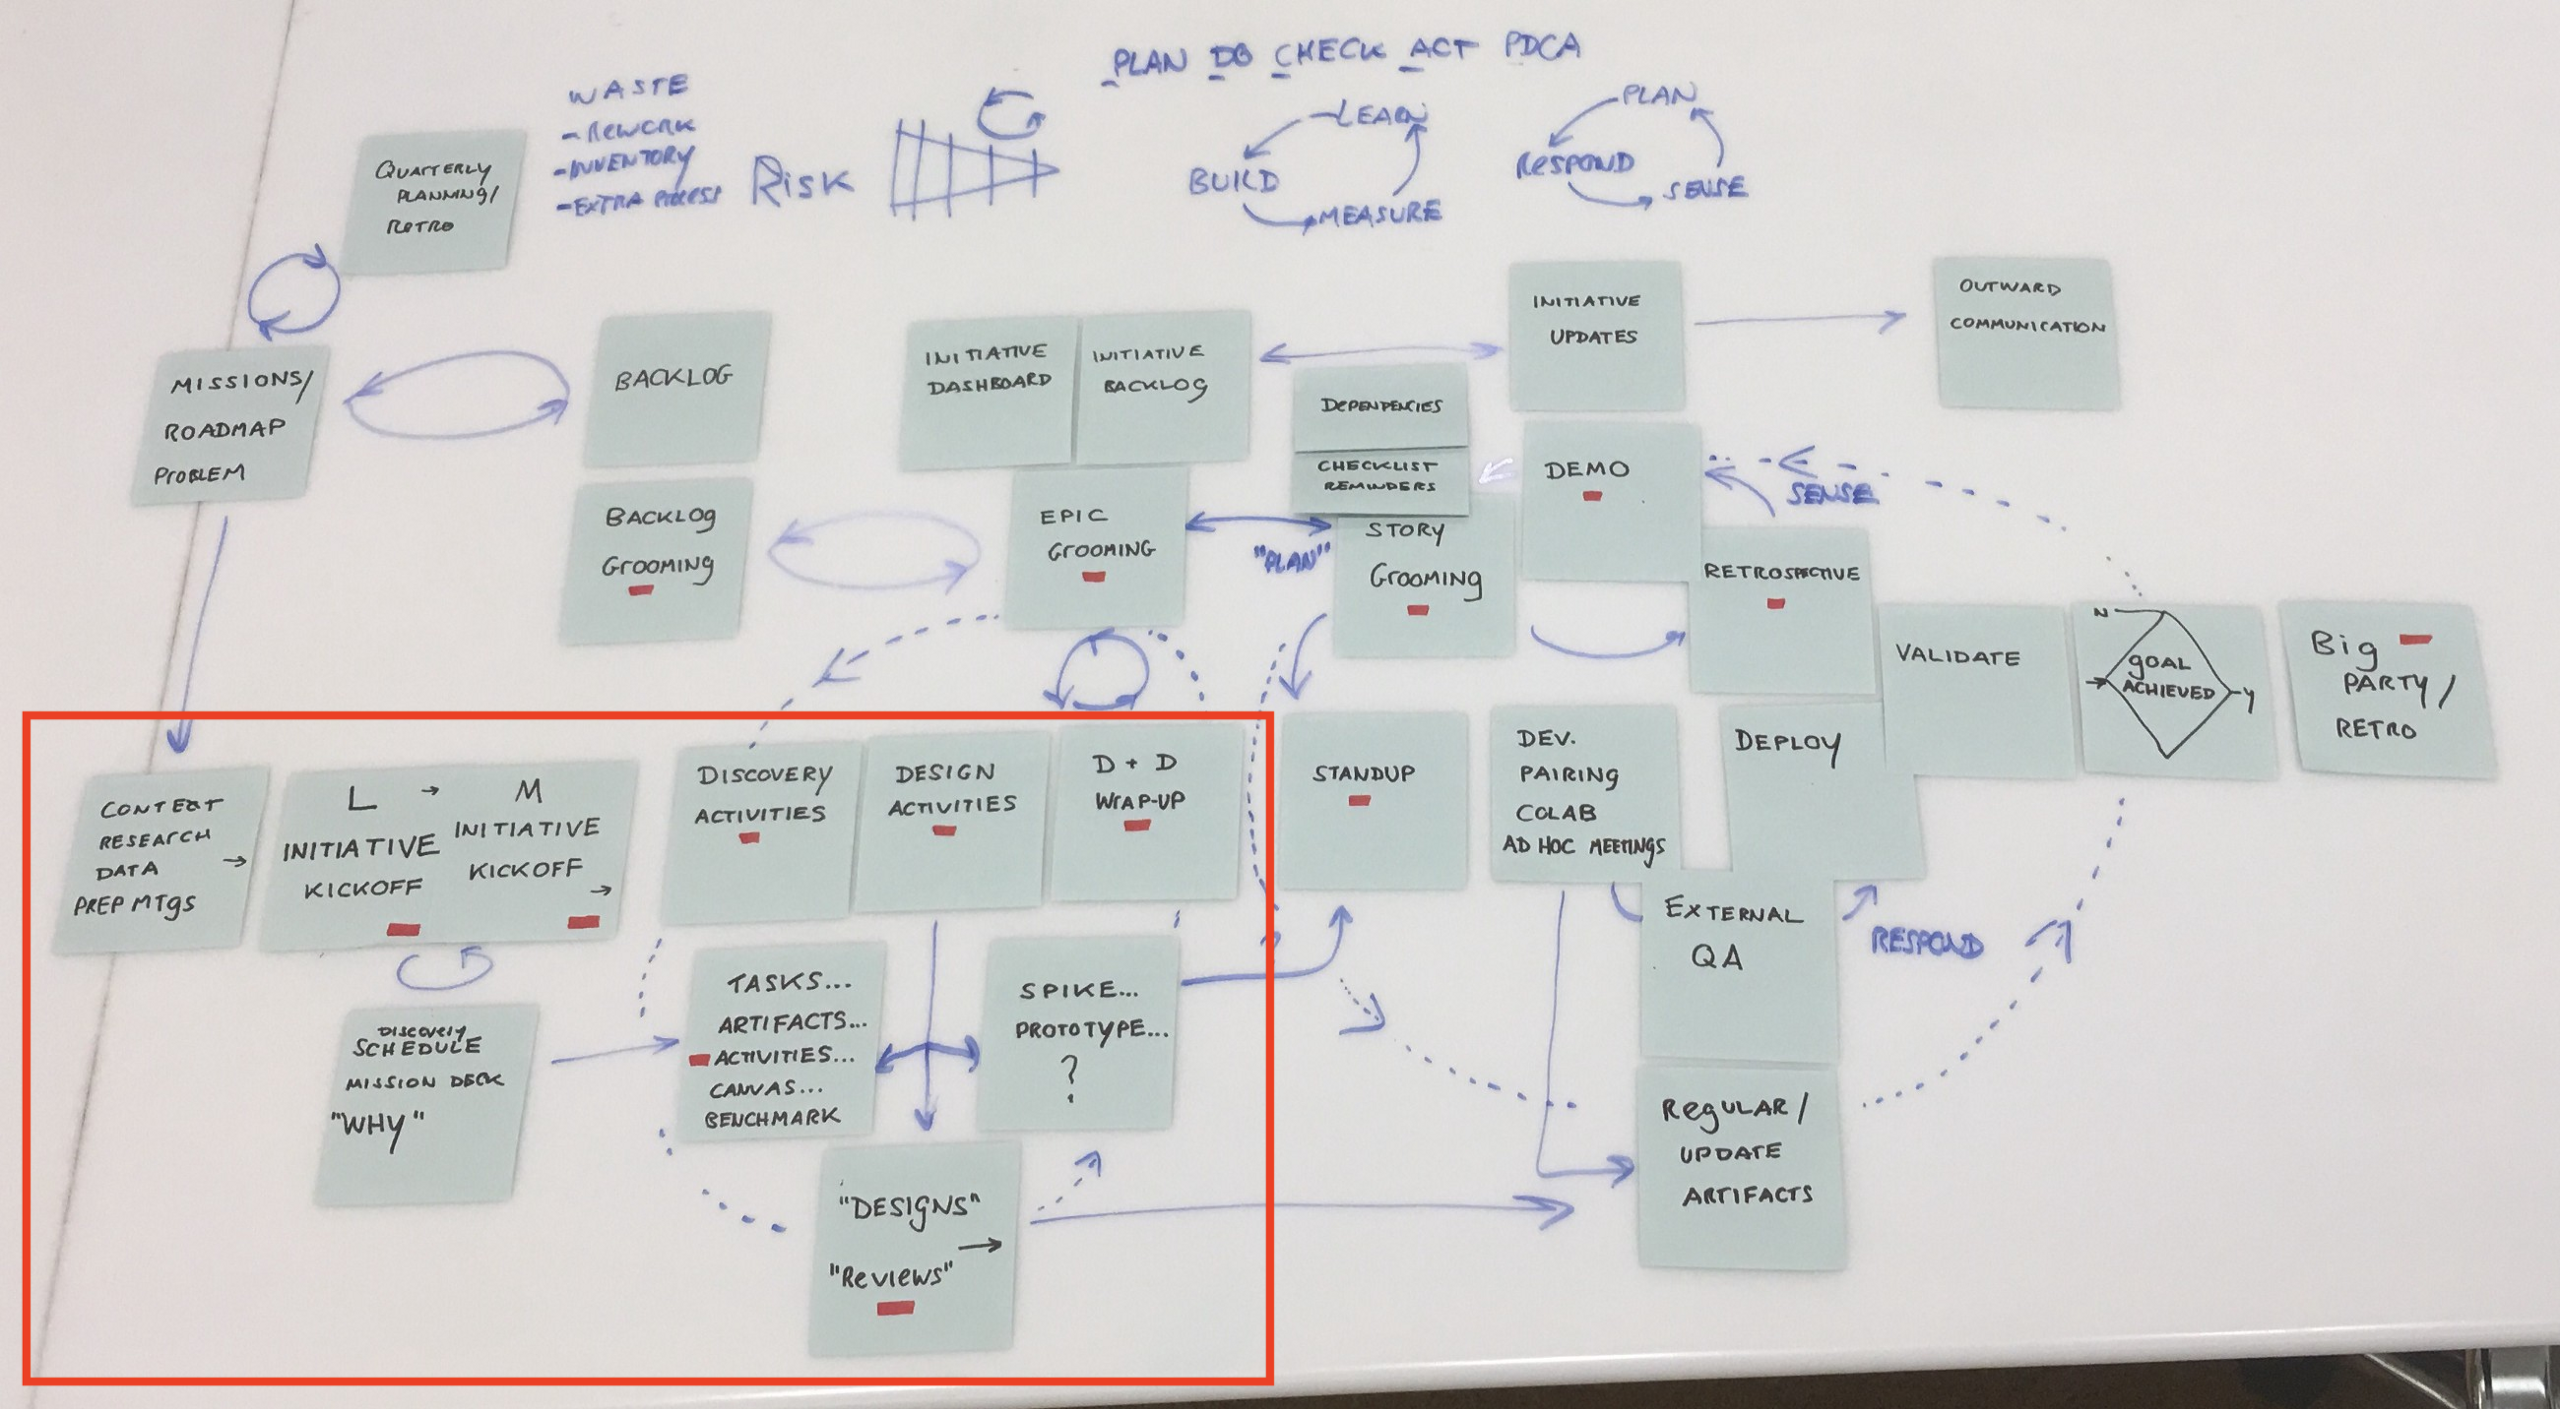 PLAN DO CHECK ACT PDCA
WASTE
- REWORK
- INVENTORY
- EXTRA PROCESS
RISK
LEARN
BUILD
MEASURE
PLAN
RESPOND
SENSE
QUATTERLY
PLANNING/
RETRO
MISSIONS/
ROADMAP
PROBLEM
BACKLOG
INITIATIVE
DASHBOARD
INITIATIVE
BACKLOG
INITIATIVE
UPDATES
OUTWARD
COMMUNICATION
DEPENDENCIES
CHECKLIST
REMINDERS
BACKLOG
GROOMING
EPIC
GROOMING
"PLAN"
STORY
GROOMING
DEMO
SENSE
RETROSPECTIVE
VALIDATE
N
GOAL
ACHIEVED
Y
Big
PARTY/
RETRO
CONTEXT
RESEARCH
DATA →
PREP MTGS
L → M
INITIATIVE
KICKOFF
INITIATIVE
KICKOFF →
DISCOVERY
ACTIVITIES
DESIGN
ACTIVITIES
D + D
WRAP-UP
STANDUP
DEV.
PAIRING
COLAB
AD HOC MEETINGS
DEPLOY
DISCOVERY
SCHEDULE
MISSION DECK
"WHY"
TASKS...
ARTIFACTS...
ACTIVITIES...
CANVAS...
BENCHMARK
SPIKE...
PROTOTYPE...
?
EXTERNAL
QA
RESPOND
"DESIGNS"
→
"Reviews"
RegULAR/
UPDATE
ARTIFACTS